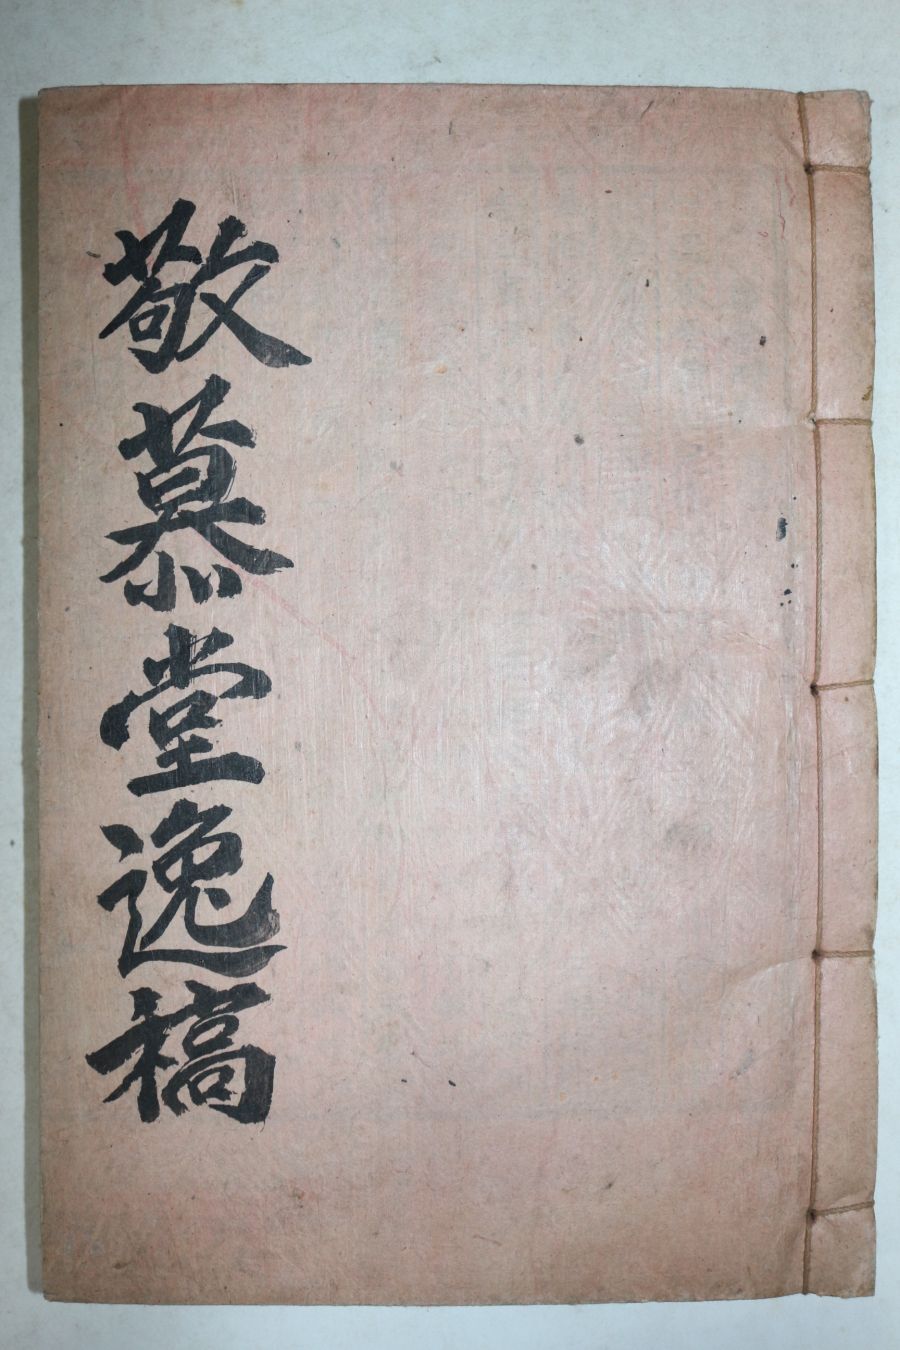 敬慕堂逸稿